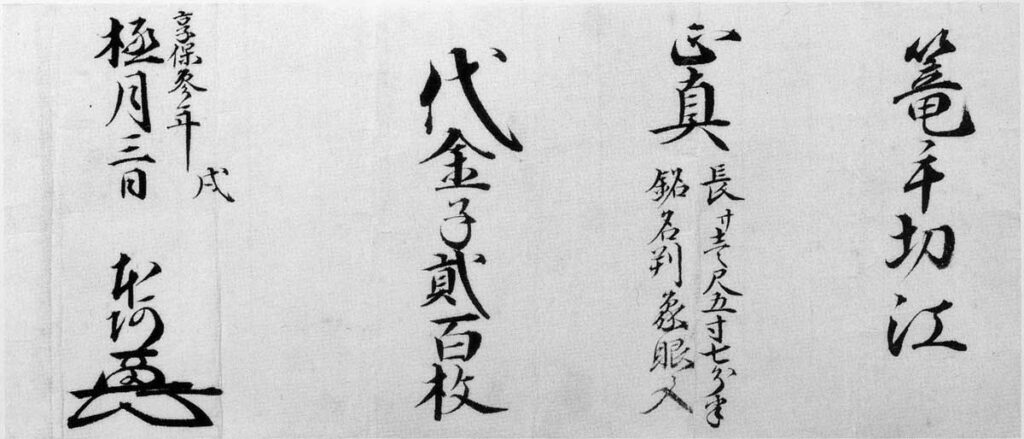 篭手切江
正真
長サ壱尺五寸七分半
銘名判象眼
代金子貳百枚
享保参年
戌
極月三日
本阿